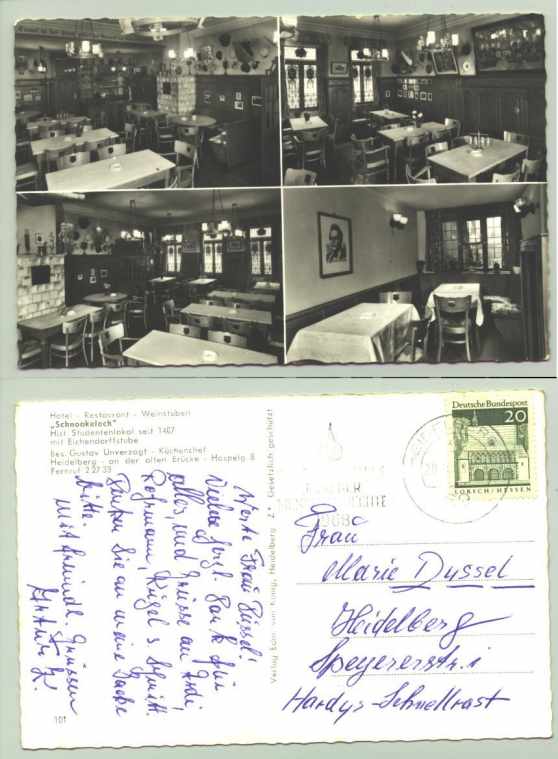 Hotel - Restaurant - Weinstuberl
„Schnookeloch"
Hist. Studentenlokal seit 1407
mit Eichendorffstube
Bes. Gustav Unverzagt - Küchenchef
Heidelberg - an der alten Brücke - Haspelg. 8
Fernruf 2 27 33
Werte Frau Düssel!
Vielen herzl. Dank für
alles, und Grüsse an Rudi,
Rohrmann, Kügel s Schmitt.
Denken Sie an meine Sache
bitte.
mit freundl. Grüssen
101
Verlag Edm. von König, Heidelberg 2 • Gesetzlich geschützt
1968
Deutsche Bundespost
20
LORSCH/HESSEN
Frau
Marie Dussel
Heidelberg
Speyererstr. 1
Hardys-Schnellrast